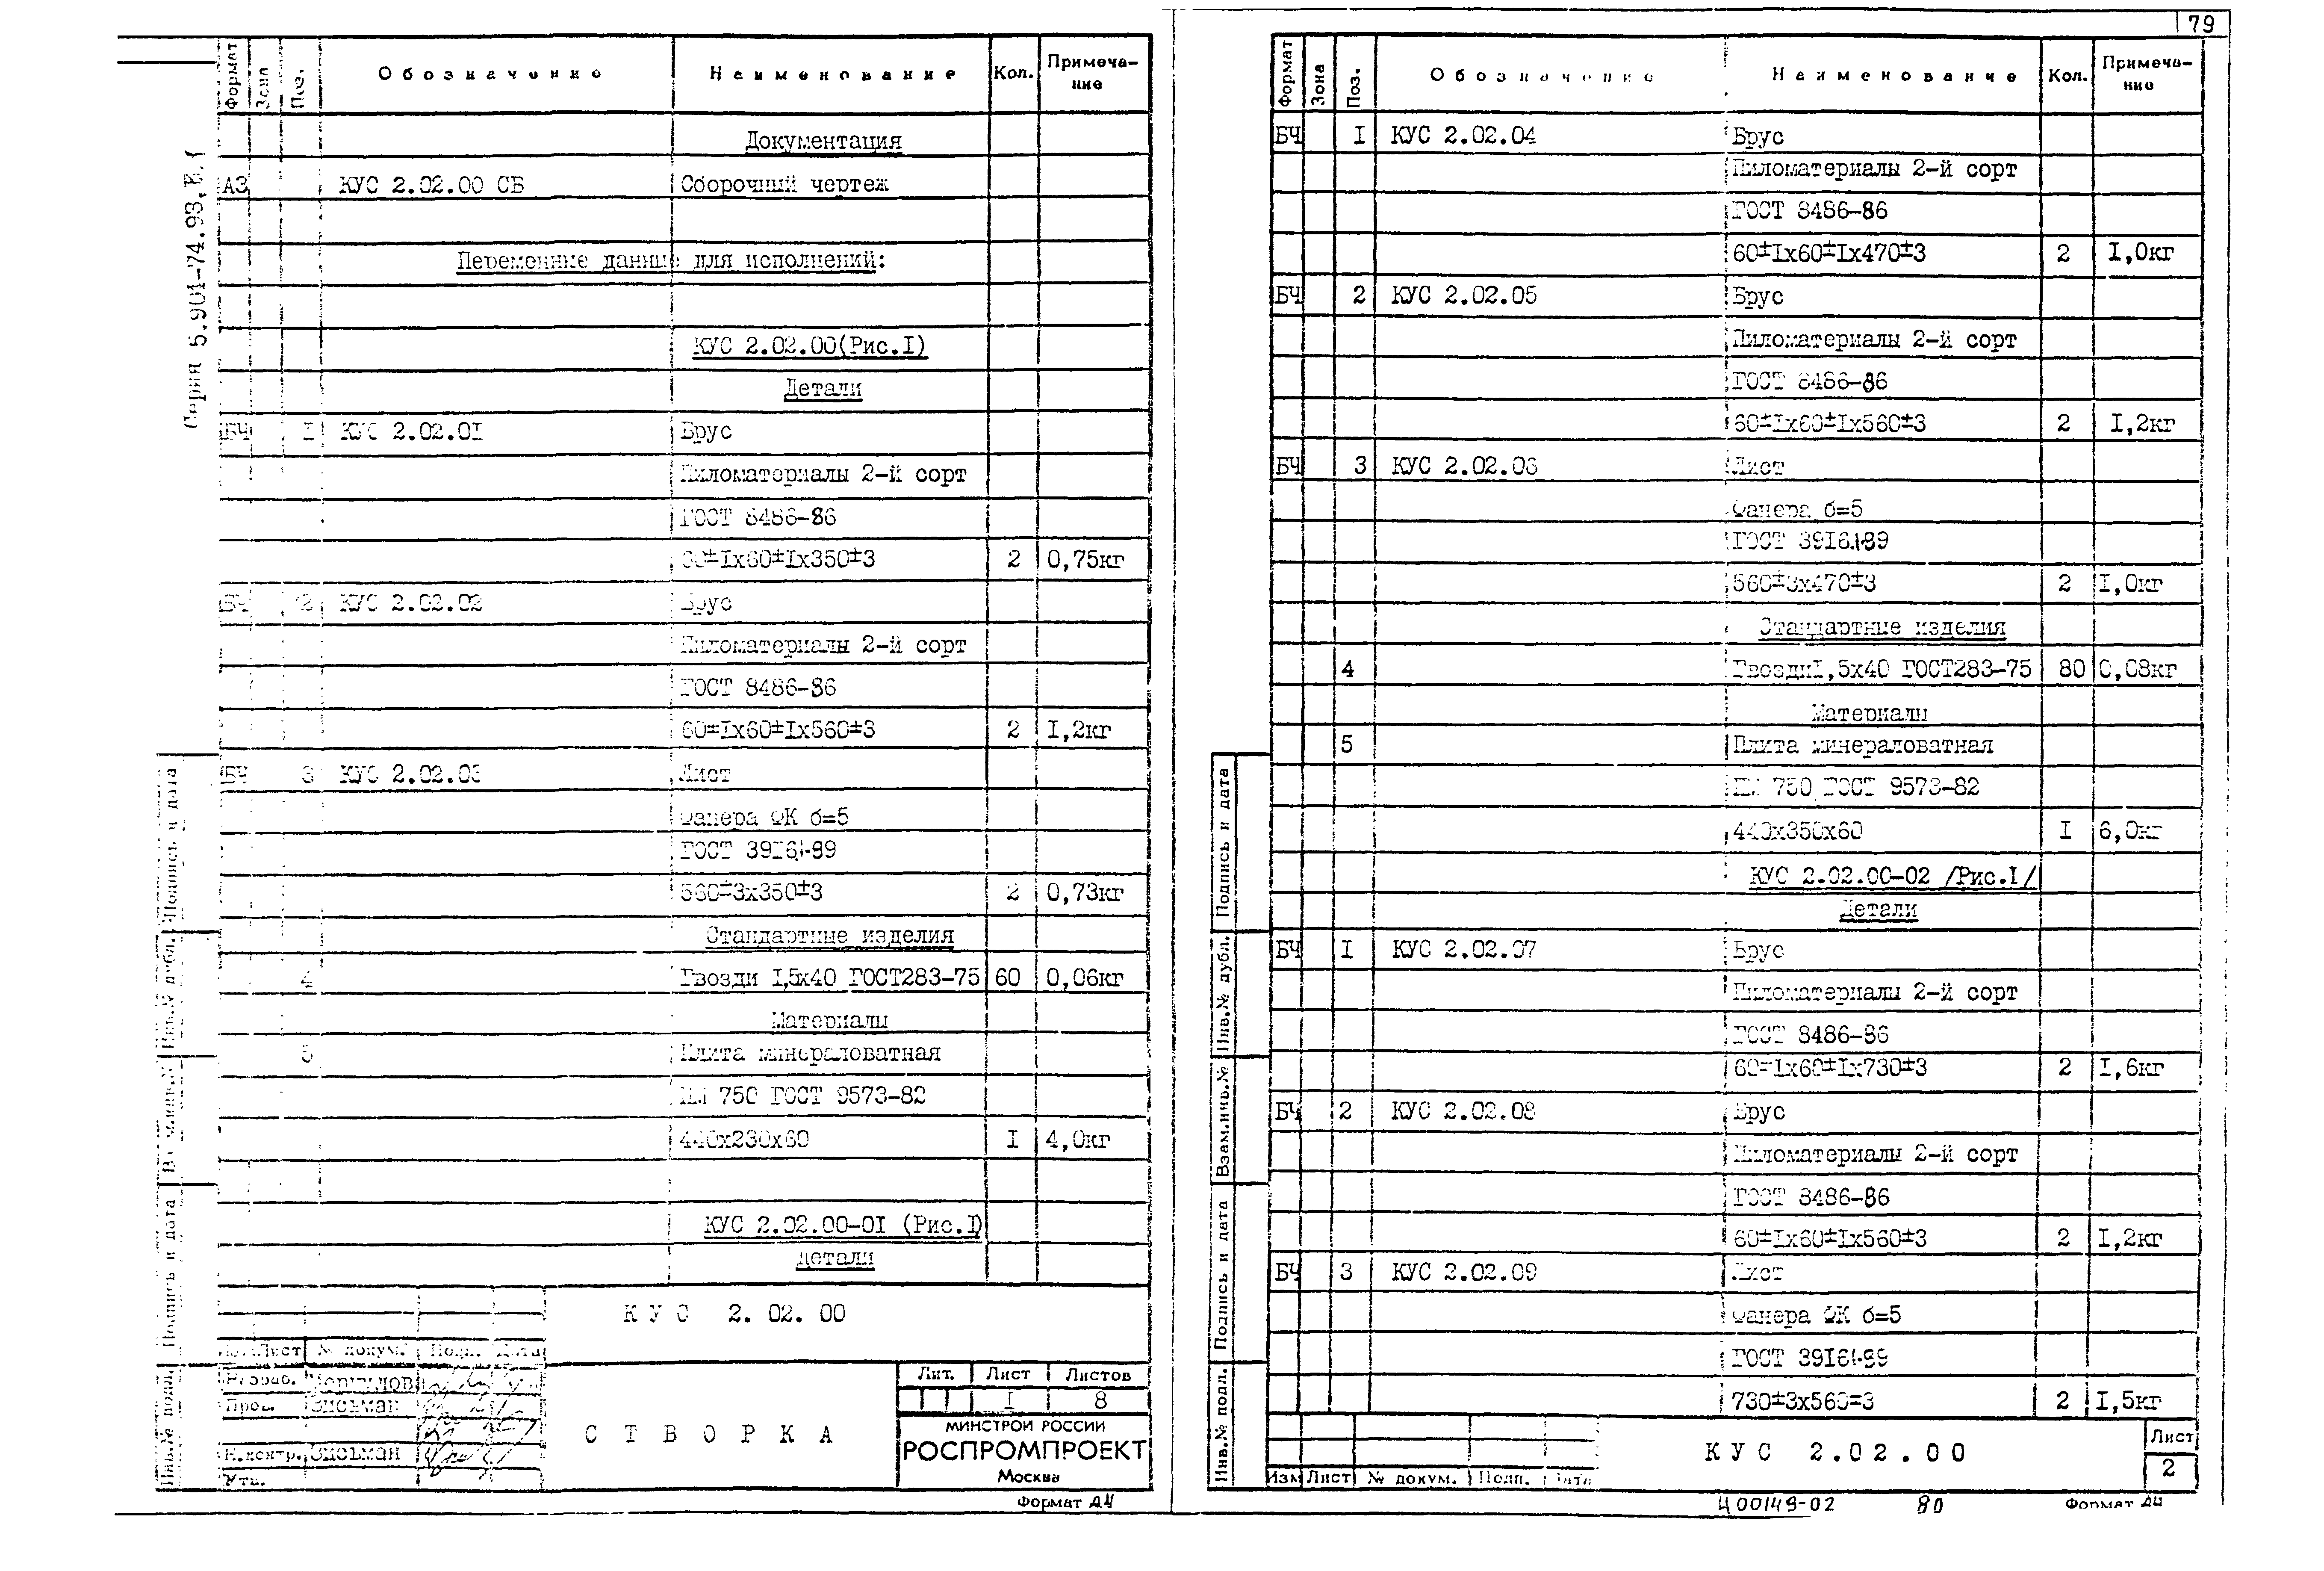 79
Серия 5.904-74.93, В.1
Формат Зона Поз. Обозначение Наименование Кол. Примеча-
ние
Документация
А3 КУС 2.02.00 СБ Сборочный чертеж
Переменные данные для исполнений:
КУС 2.02.00(Рис.I)
Детали
БЧ I КУС 2.02.0I Брус
Пиломатериалы 2-й сорт
ГОСТ 8486-86
60±Iх60±Iх350±3 2 0,75кг
БЧ 2 КУС 2.02.02 Брус
Пиломатериалы 2-й сорт
ГОСТ 8486-86
60±Iх60±Iх560±3 2 I,2кг
БЧ 3 КУС 2.02.03 Лист
Фанера ФК б=5
ГОСТ 39I6.1-89
560±3х350±3 2 0,73кг
Стандартные изделия
4 Гвозди I,5х40 ГОСТ283-75 60 0,06кг
Материалы
5 Плита минераловатная
ПМ 750 ГОСТ 9573-82
440х230х60 I 4,0кг
КУС 2.02.00-0I (Рис.I)
Детали
КУС 2.02.00
Лист № докум. Подп. Дата
Разраб.
Пров. Зисьман
Н.контр. Зисьман
Утв.
СТВОРКА
Лит. Лист Листов
I 8
МИНСТРОЙ РОССИИ
РОСПРОМПРОЕКТ
Москва
Формат А4
Подпись и дата
Инв.№ дубл.
Взам.инв.№
Подпись и дата
Инв.№ подл.
Формат Зона Поз. Обозначение Наименование Кол. Примеча-
ние
БЧ I КУС 2.02.04 Брус
Пиломатериалы 2-й сорт
ГОСТ 8486-86
60±Iх60±Iх470±3 2 I,0кг
БЧ 2 КУС 2.02.05 Брус
Пиломатериалы 2-й сорт
ГОСТ 8486-86
60±Iх60±Iх560±3 2 I,2кг
БЧ 3 КУС 2.02.06 Лист
Фанера б=5
ГОСТ 39I6.1-89
560±3х470±3 2 I,0кг
Стандартные изделия
4 ГвоздиI,5х40 ГОСТ283-75 80 0,08кг
Материалы
5 Плита минераловатная
ПМ 750 ГОСТ 9573-82
440х350х60 I 6,0кг
КУС 2.02.00-02 /Рис.I/
Детали
БЧ I КУС 2.02.07 Брус
Пиломатериалы 2-й сорт
ГОСТ 8486-86
60±Iх60±Iх730±3 2 I,6кг
БЧ 2 КУС 2.02.08 Брус
Пиломатериалы 2-й сорт
ГОСТ 8486-86
60±Iх60±Iх560±3 2 I,2кг
БЧ 3 КУС 2.02.09 Лист
Фанера ФК б=5
ГОСТ 39I6.1-89
730±3х560±3 2 I,5кг
КУС 2.02.00
Лист
2
Изм Лист № докум. Подп. Дата
Ц00149-02 80 Формат А4
Подпись и дата
Инв.№ дубл.
Взам.инв.№
Подпись и дата
Инв.№ подл.